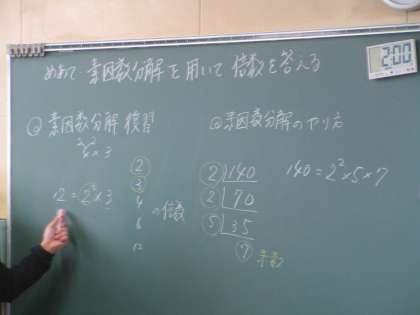 めあて・素因数分解を用いて倍数を答える
2:00
◎素因数分解 復習
2×2×3
12=2²×3
②
③
4
6
12
の倍数
◎素因数分解のやり方
2 140
2 70
5 35
7 素数
140=2²×5×7